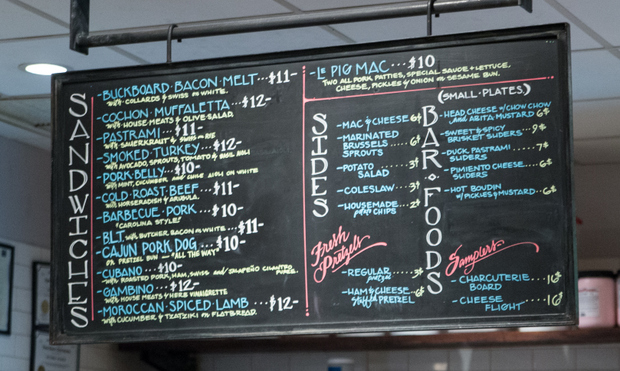 SANDWICHES
-BUCKBOARD BACON MELT...$11-
with COLLARDS & SWISS on WHITE.
-COCHON MUFFALETTA...$12-
with HOUSE MEATS & OLIVE SALAD.
-PASTRAMI...$11-
with SAUERKRAUT & SWISS on RYE
-SMOKED TURKEY...$12-
with AVOCADO, SPROUTS, TOMATO & BASIL AIOLI
-PORK BELLY...$10-
with MINT, CUCUMBER and CHILE AIOLI on WHITE
-COLD ROAST BEEF...$11-
with HORSERADISH & ARUGULA.
-BARBECUE PORK...$10-
"CAROLINA STYLE"
-BLT with BUTCHER BACON on WHITE...$11-
-CAJUN PORK DOG...$10-
on PRETZEL BUN — "ALL THE WAY"
-CUBANO...$10-
with ROASTED PORK, HAM, SWISS and JALAPEÑO CILANTRO
-GAMBINO...$12-
with HOUSE MEATS & HERB VINAIGRETTE
-MOROCCAN SPICED LAMB...$12-
with CUCUMBER & TZATZIKI on FLATBREAD.
-LE PIG MAC...$10
TWO ALL PORK PATTIES, SPECIAL SAUCE & LETTUCE.
CHEESE, PICKLES & ONION on SESAME BUN.
SIDES
-MAC & CHEESE 6$
-MARINATED
BRUSSELS
SPROUTS
-POTATO
SALAD
-COLESLAW...3$
-HOUSEMADE
CHIPS
Fresh Pretzels
-REGULAR....3$
-HAM & CHEESE
Stuffed PRETZEL 6$
BAR·FOODS
(SMALL·PLATES)
-HEAD CHEESE w/ CHOW CHOW
AND ABITA MUSTARD 6$
-SWEET & SPICY
BRISKET SLIDERS ...9$
-DUCK PASTRAMI
SLIDERS ...7$
-PIMIENTO CHEESE
SLIDERS ...6$
-HOT BOUDIN
w/ PICKLES & MUSTARD..6$
Samplers
-CHARCUTERIE
BOARD ...16$
-CHEESE
FLIGHT ...16$